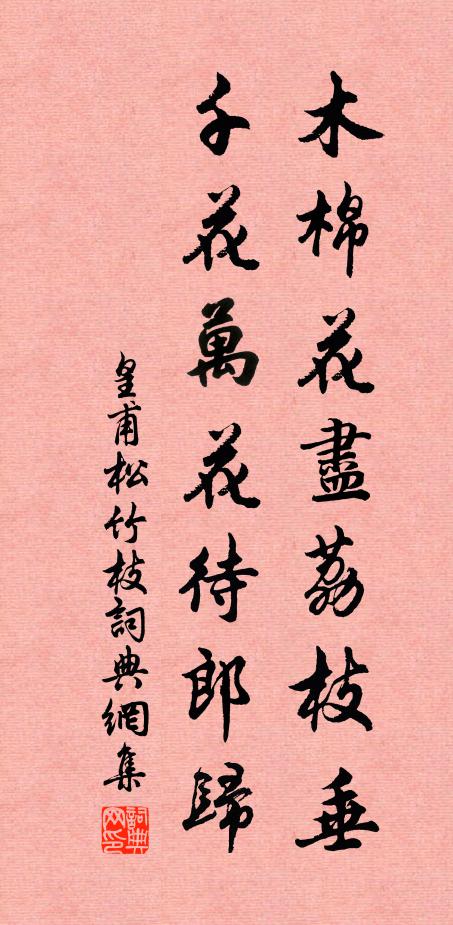 木棉花盡荔枝垂
千花萬花待郎歸
皇甫松竹枝詞典網集
詞典网印